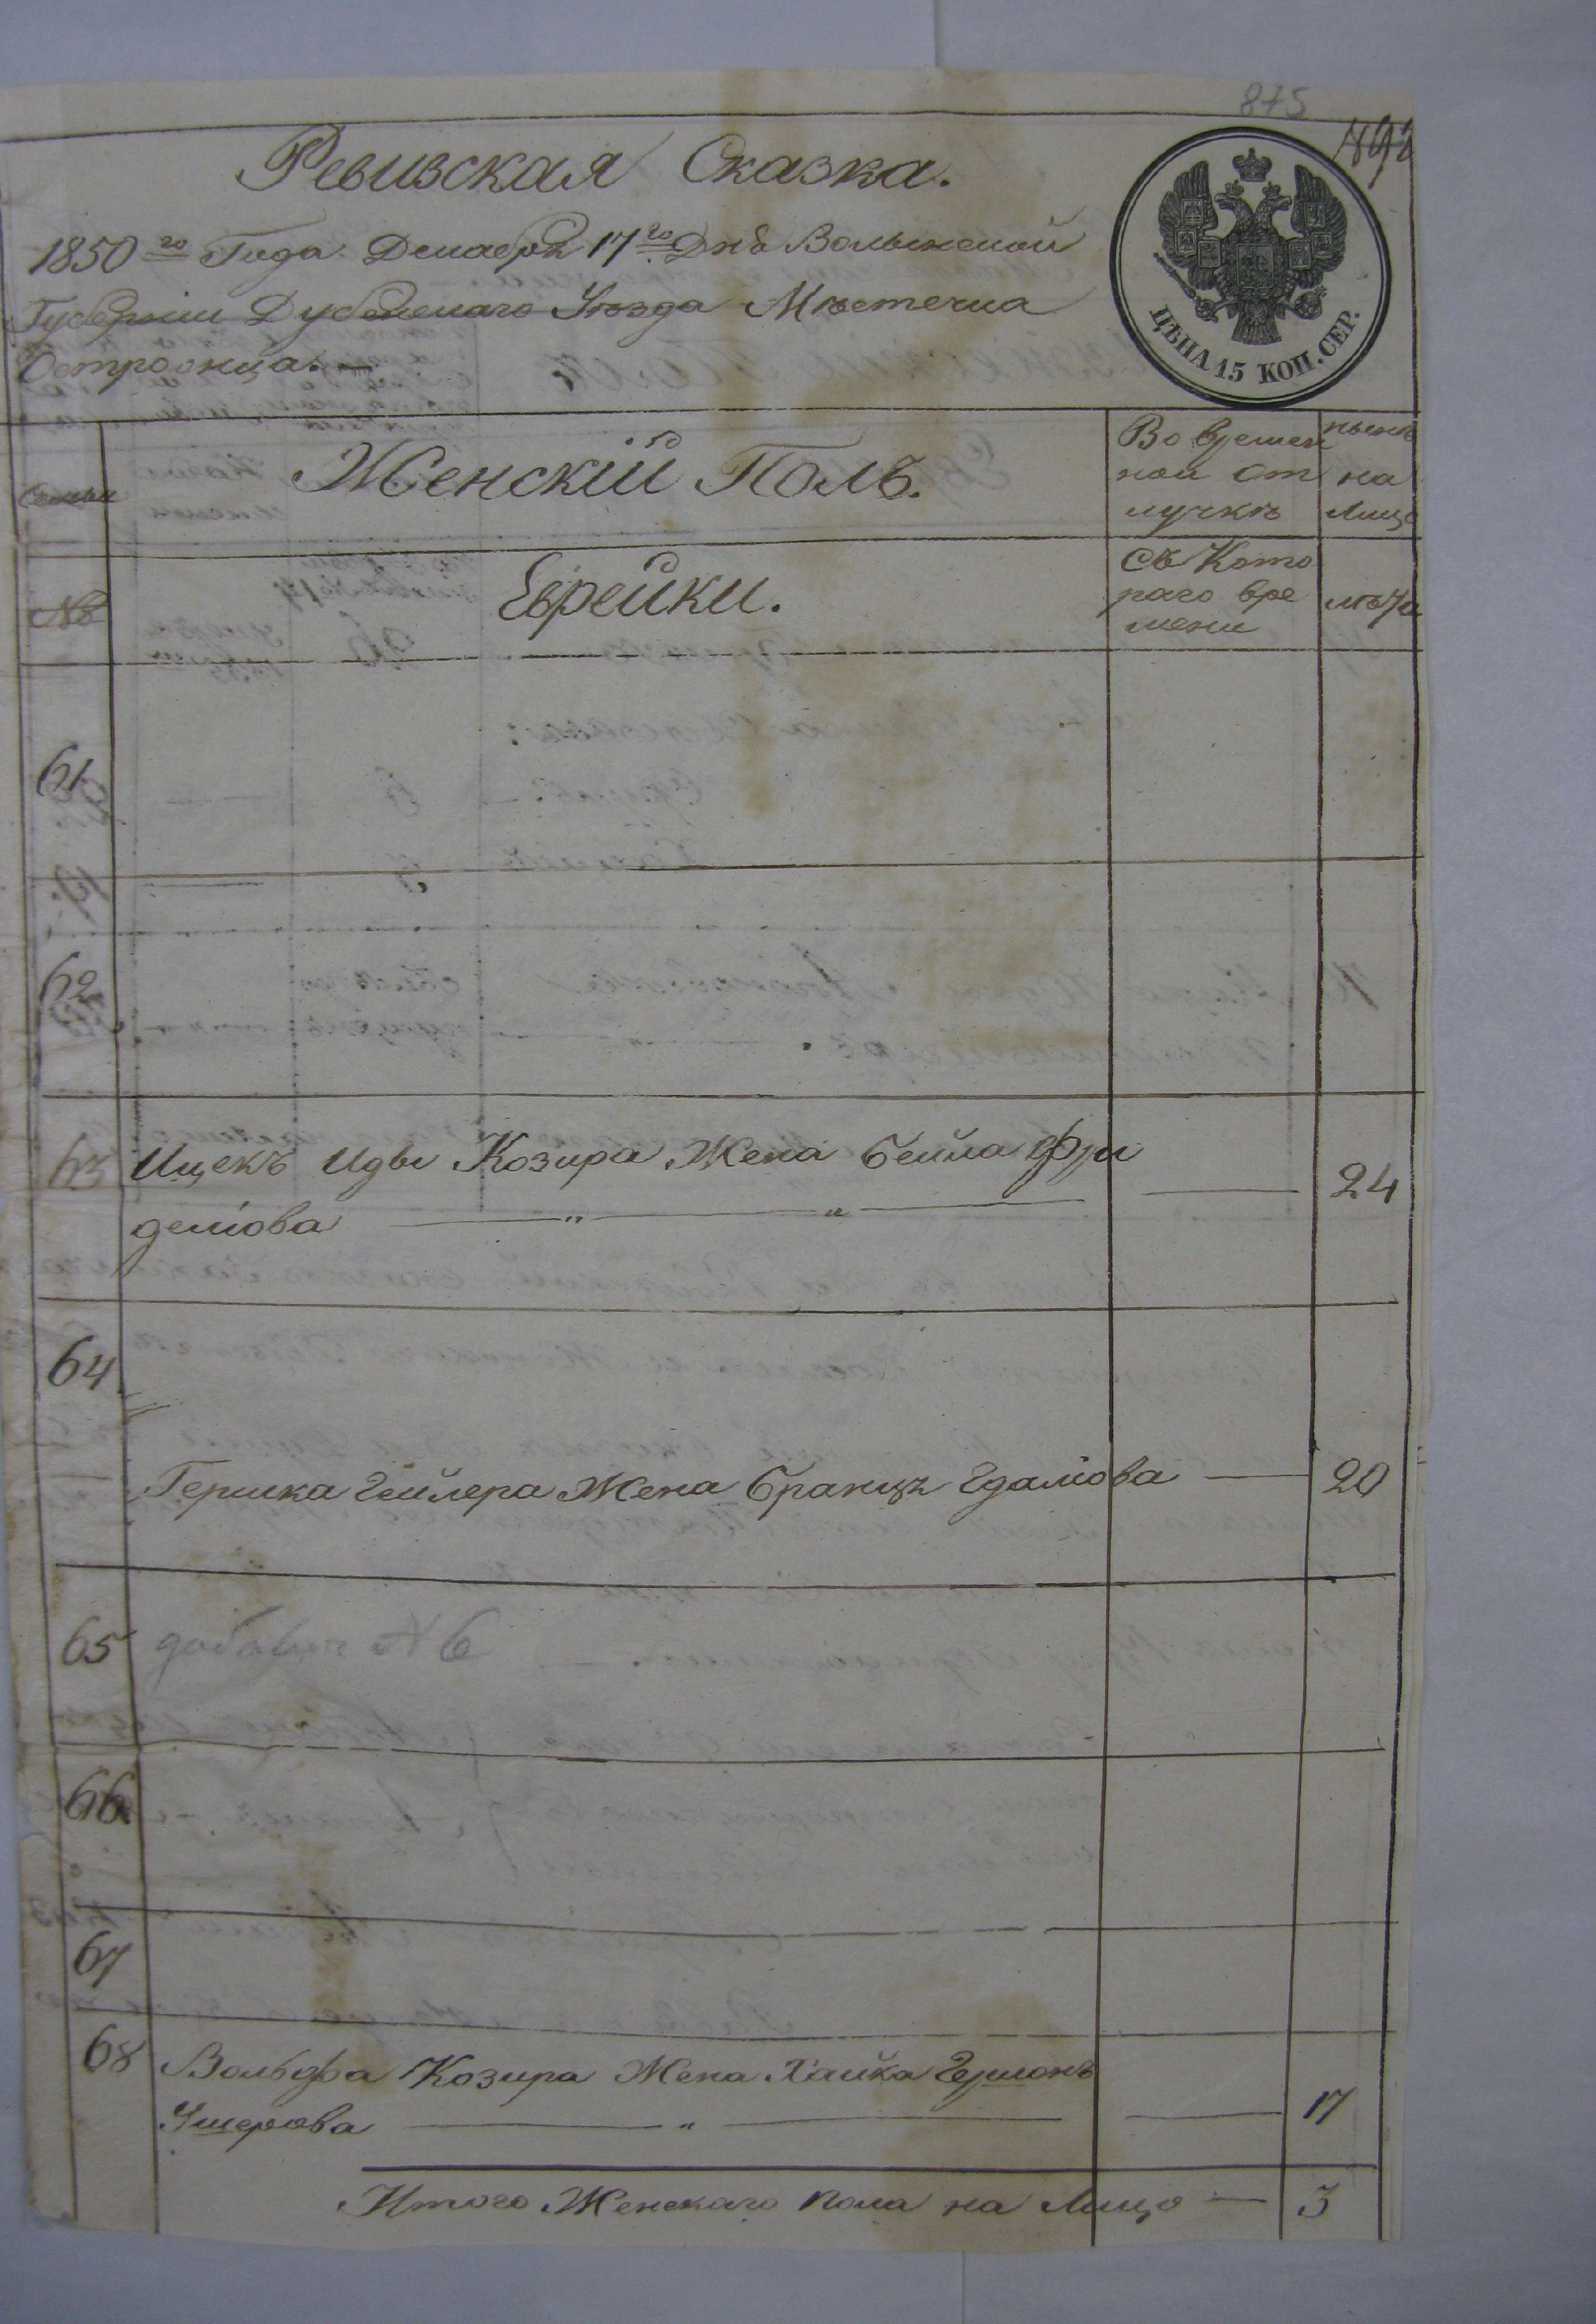 875
Ревизская Сказка.
1850го Года Декабря 17го Дня Волынской
Губернiи Дубенскаго Уѣзда Мѣстечка
Острожца.
ЦѢНА 15 КОП. СЕР.
Семьи
Женскiй Полъ.
Во времен
ной от
лучкѣ
нынѣ
на
Лицо
№
Еврейки.
Съ Кото
раго вре
мени
лѣта
61
62
63 Ицекъ Идвы Козира Жена Бейла Фри
делiова 24
64
Гершка Гейлера Жена Бранцъ Едалiова 20
65 добавич N 6
66
67
68 Вольфа Козира Жена Хайка Гершонъ
Ушерова 17
Итого Женскаго пола на Лицо — 3